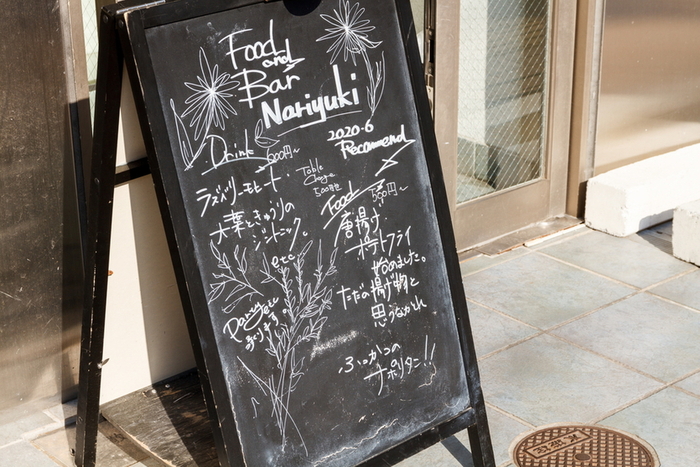 Food
and
Bar
Nariyuki
2020-6
Recommend
Drink 600円〜
ラズベリーモヒート・
大葉ときゅうりの
ジントニック。
etc
Table
Charge
500円
Food 500円〜
唐揚げ・
ポテトフライ
始めました。
ただの揚げ物と
思うなかれ
ふっかつの
ナポリタン!!
Party etc
承ります。